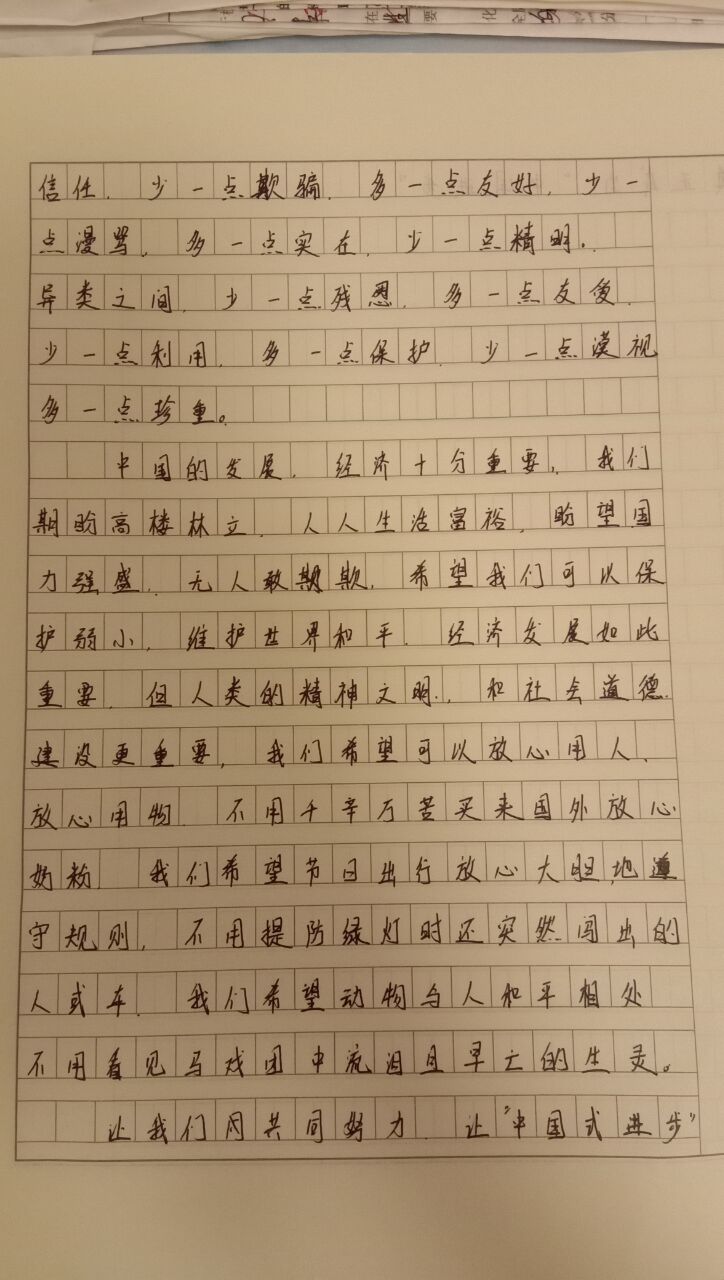 在 要 化
信任，少一点欺骗，多一点友好，少一
点漫骂，多一点实在，少一点精明。
异类之间，少一点残忍，多一点友爱，
少一点利用，多一点保护，少一点漠视
多一点珍重。
中国的发展，经济十分重要，我们
期盼高楼林立，人人生活富裕，盼望国
力强盛，无人敢期欺，希望我们可以保
护弱小，维护世界和平，经济发展如此
重要，但人类的精神文明，和社会道德
建设更重要，我们希望可以放心用人，
放心用物，不用千辛万苦买来国外放心
奶粉，我们希望节日出行放心大胆地遵
守规则，不用提防绿灯时还突然闯出的
人或车，我们希望动物与人和平相处
不用看见马戏团中流泪且早亡的生灵。
让我们网共同努力，让“中国式进步”